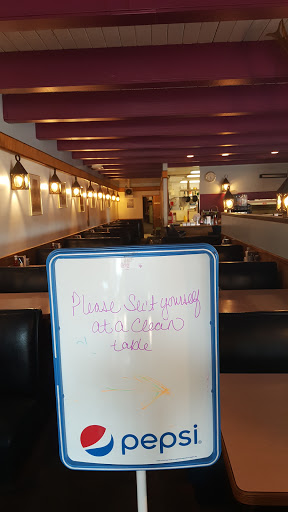 Please Seat yourself
at a Clean
table
pepsi